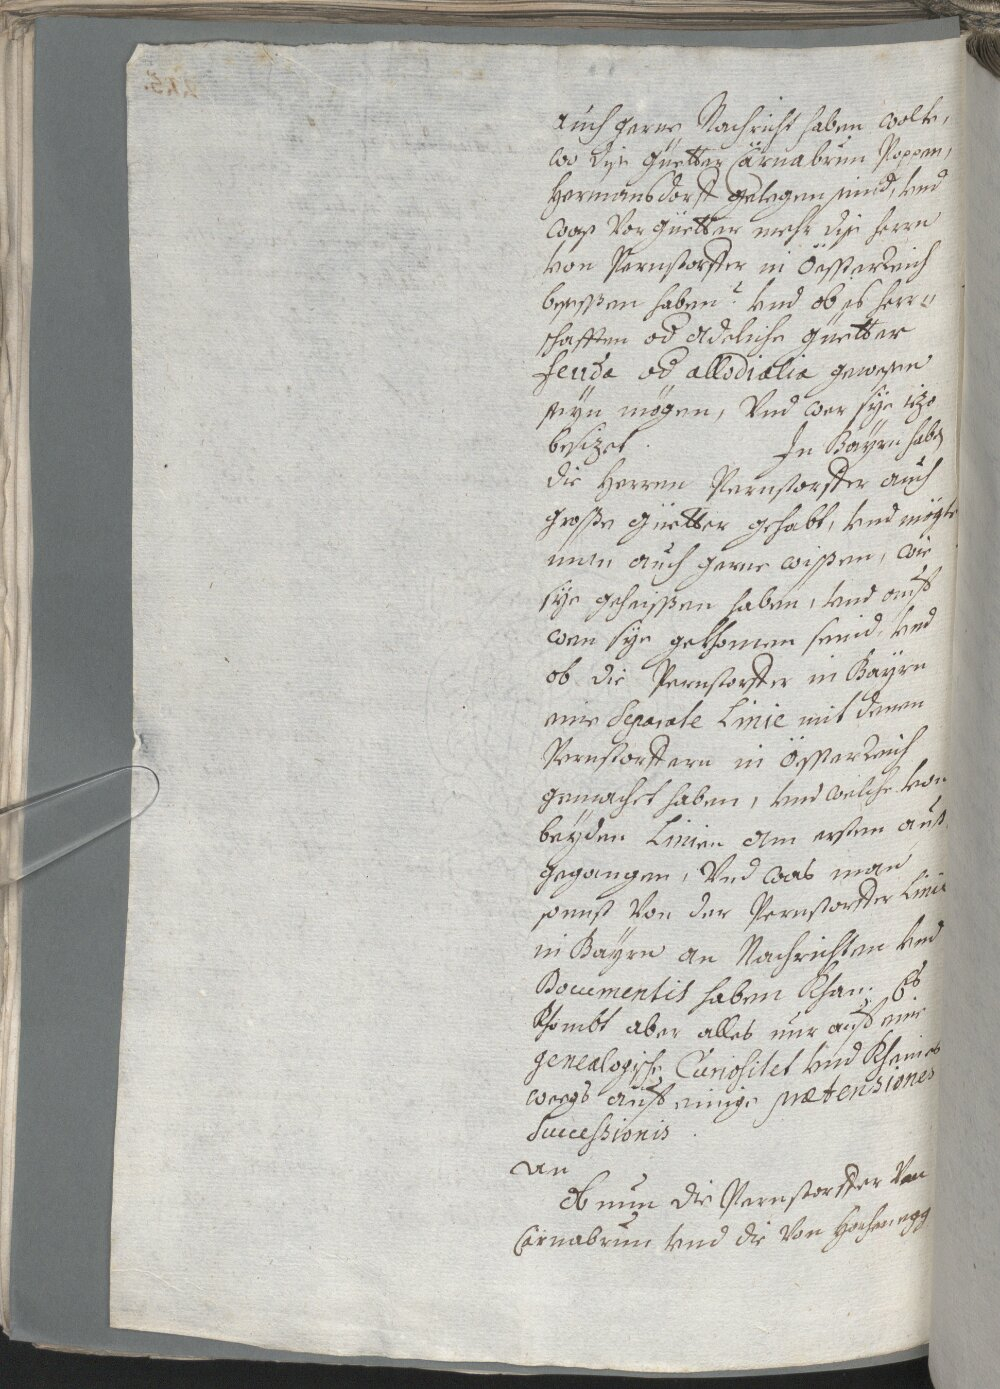 auch gerne Nachricht haben wolte,
wo dise Güetter Cärnabrun Poppen,
Hermansdorff gelegen sind, und
was vor Güetter mehr dise Herrn
von Pernstorffer in Öesterreich
besessen haben? und ob es Herr=
schafften od Adeliche Güetter
feuda od allodialia gewesen
seyn mögen, und wer sÿe izo
besizet. In Baÿrn habn
die Herren Pernstorffer auch
grosse Güetter gehabt, und mögte
man auch gerne wissen, wie
sÿe geheissen haben, und auf
wen sÿe gekhomen seind, und
ob die Pernstorffer in Baÿrn
eine Separate Linie mit denen
Pernstorffern in Össterreich
gemachet haben, und welche von
beÿden Linien am ersten auß
gegangen, und was man
sonst von der Pernstorffer Linie
in Baÿrn an Nachrichten und
Documentis haben khan. Es
khombt aber alles nur auf eine
genealogische Curiositet und kheines
weegs auf einige prætensiones
Successionis
an
Ob nun die Pernstorffer von
Cärnabrun und die von Hochenegg